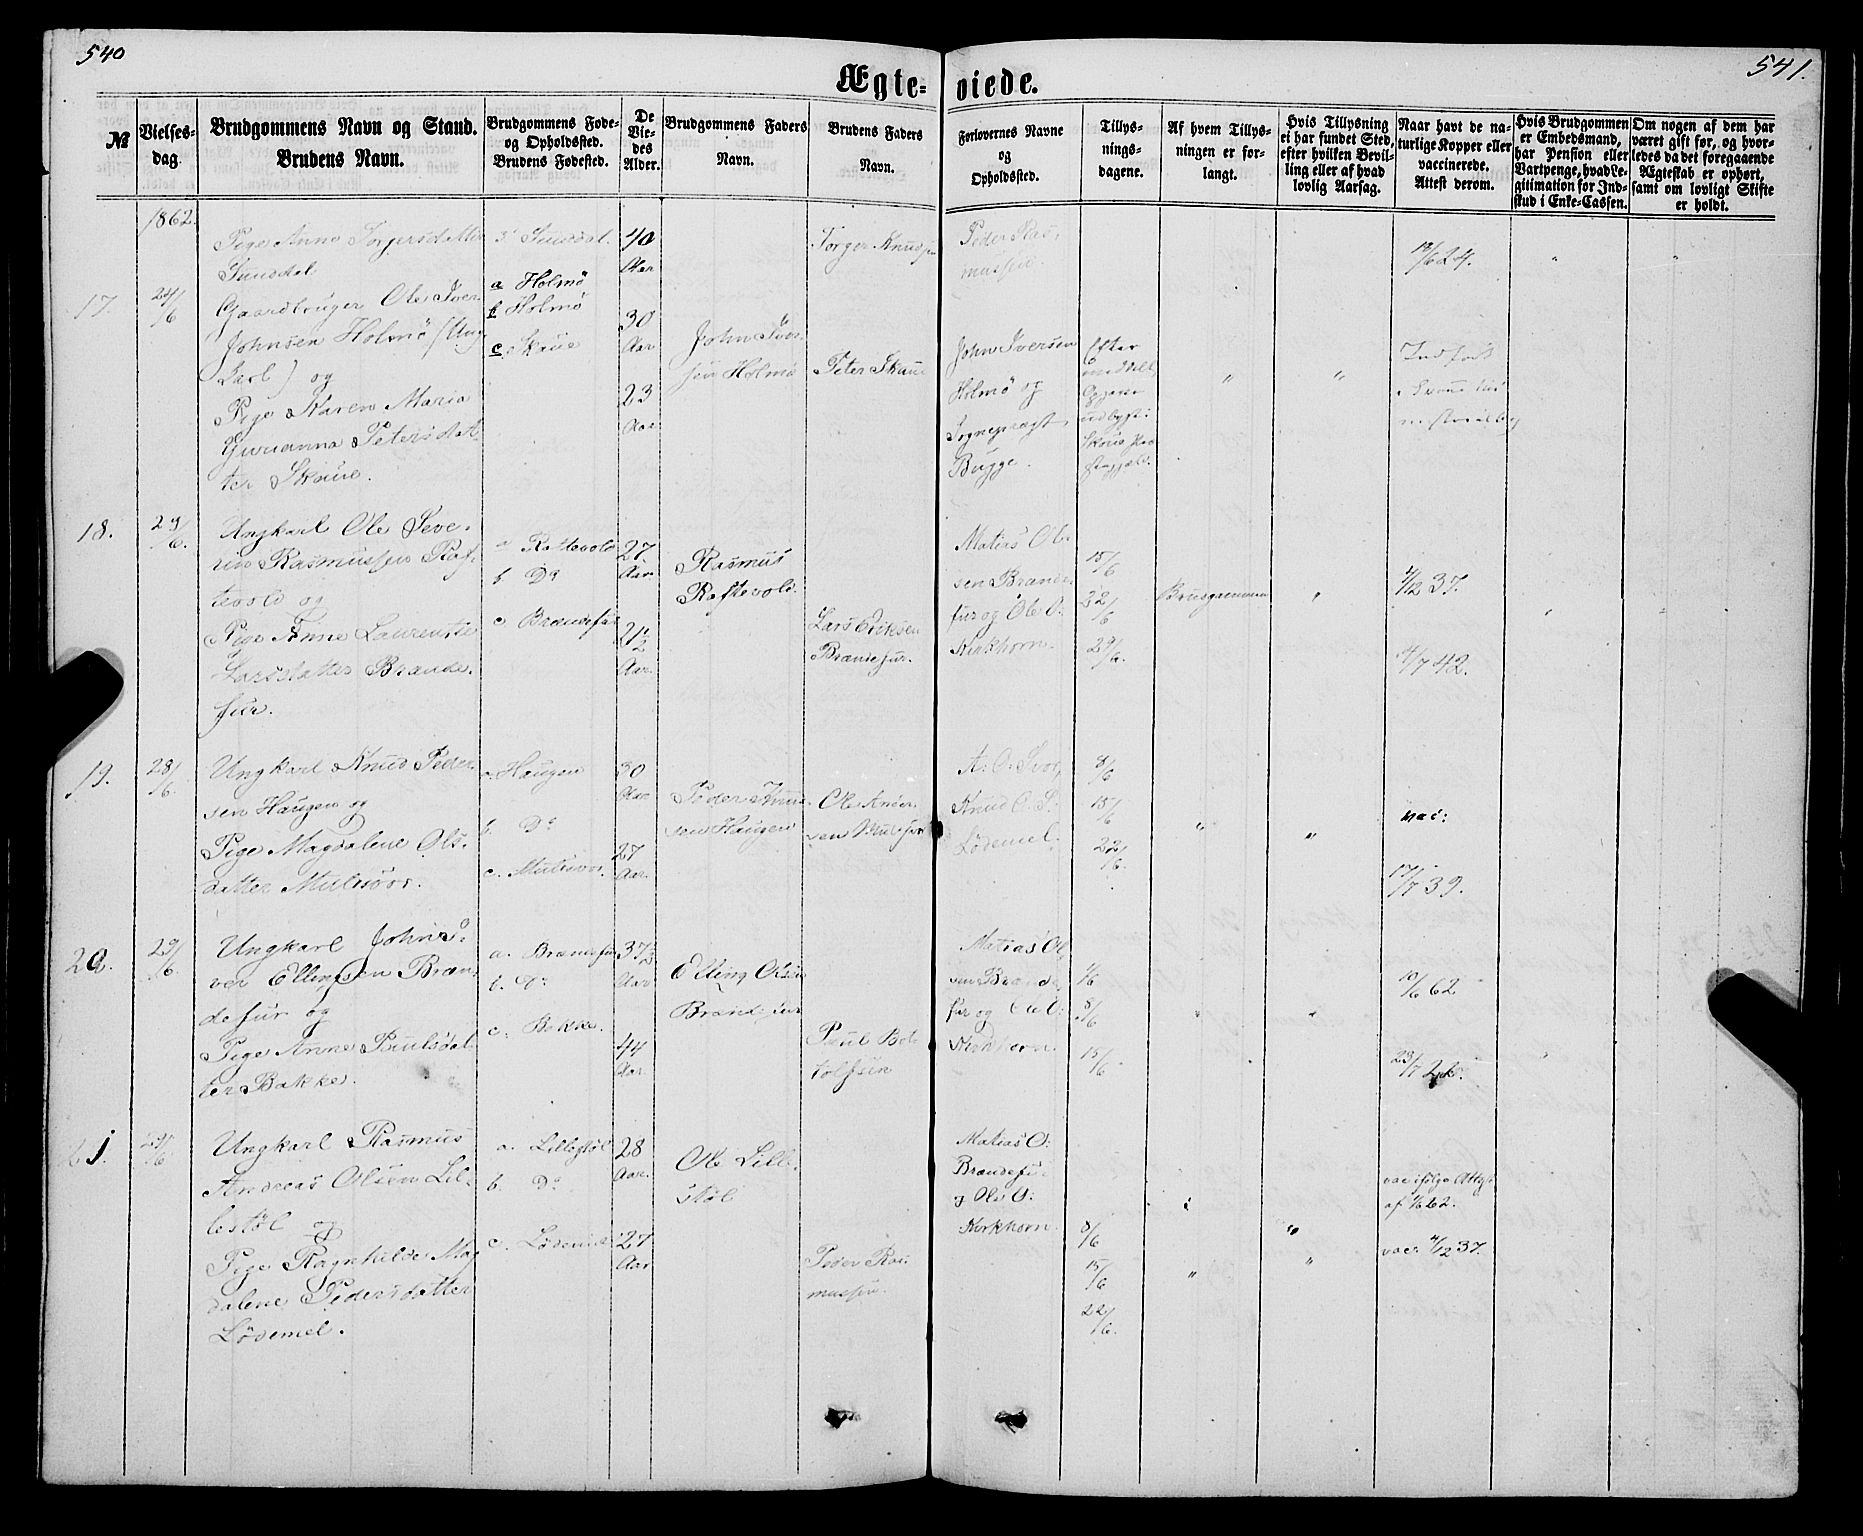 540
541.
Ægte-
viede.
№
Vielses-
dag.
Brudgommens Navn og Stand.
Brudens Navn.
Brudgommens Føde-
og Opholdssted.
Brudens Fødested.
De
Vie-
des
Alder.
Brudgommens Faders
Navn.
Brudens Faders
Navn.
Forlovernes Navne
og
Opholdssted.
Tillys-
nings-
dagene.
Af hvem Tillys-
ningen er for-
langt.
Hvis Tillysning
ei har fundet Sted,
efter hvilken Bevil-
ling eller af hvad
lovlig Aarsag.
Naar havt de na-
turlige Kopper eller
vaccinerede.
Attest derom.
Hvis Brudgommen
er Embedsmand,
har Pension eller
Vartpenge, hvad Le-
gitimation for Ind-
skud i Enke-Cassen.
Om nogen af dem har
været gift før, og hvor-
ledes da det foregaaende
Ægteskab er ophørt,
samt om lovligt Skifte
er holdt.
1862.
Pige Anne Torgersdatter
40
Aar
Torger Knudsen
Peder Ras-
mussen.
17.
24/6
Gaardbruger Ole Iver
Johnsen Holmö (Ung-
karl) og
Pige Karen Maria
Petersdat-
ter Skaue.
a Holmö
b Holmö
c. Skaue
30
Aar
23
Aar
John Iver-
sen Holmö
Peter Skaue
John Iversen
Holmö og
Sogneprest
Bugge.
Efter
18.
29/6.
Ungkarl Ole Seve-
rin Rasmussen Raf-
tevold og
Pige Anne Laurentse
Larsdatter Brande-
fur.
a Raftevold
b Do
c Brandefur
27
Aar
21½
Aar
Rasmus
Raftevold.
Lars Eriksen
Brandefur.
Matias Ol-
sen Brande-
fur og Ole O:
Kirkhorn.
15/6
22/6
29/6.
Brudgommen
4/12 37.
4/7 42.
19.
28/6.
Ungkarl Knud Peder-
sen Haugen og
Pige Magdalene Ols-
datter Mulsvor.
a. Haugen
b. Do
c. Mulsvor.
30
Aar
27
Aar
Peder Knud-
sen Haugen
Ole Ander-
Knud O. S:
Lödemel.
8/6
15/6
22/6.
vac:
17/7 39.
20.
29/6.
Ungkarl John Si-
ver Ellingsen Bran-
defur og
Pige Anne Paulsdat-
ter Bakke.
a. Brandefur
b. Do
c. Bakke.
37½
Aar
44
Aar
Elling Olsen
Brandefur
Paul Bot-
tolfsen
Matias Ol-
sen Brande-
fur og Ole O:
Kirkhorn.
1/6
8/6
15/6
10/6 62
21.
29/6
Ungkarl Rasmus
Andreas Olsen Lil-
lestöl og
Pige Ragnhilde Mag-
dalene Pedersdatter
Lödemel.
a. Lillestöl
b. Do
c. Lödemel
28
Aar.
27
Aar
Ole Lille-
stöl
Peder Ras-
mussen.
Matias O:
Brandefur
og Ole O:
Kirkhorn.
8/6
15/6
22/6.
vac ifölge Attest
af 1/6 62.
vac: 4/12 37.